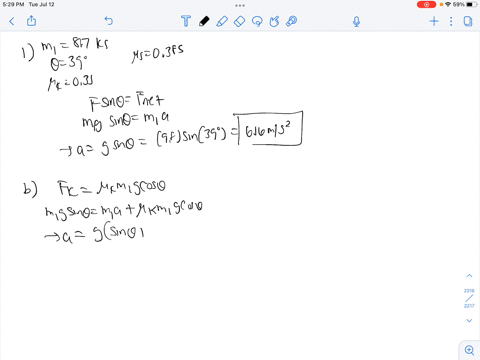 5:29 PM Tue Jul 12
59%
1) m₁ = 8.17 kg
μs = 0.385
θ = 39°
μk = 0.35
F sinθ = Fnet
m₁g sinθ = m₁a
→ a = g sinθ = (9.8) sin(39°) = 6.16 m/s²
b) Fk = μk m₁g cosθ
m₁g sinθ = m₁a + μk m₁g cosθ
→ a = g(sinθ
2216 / 2217